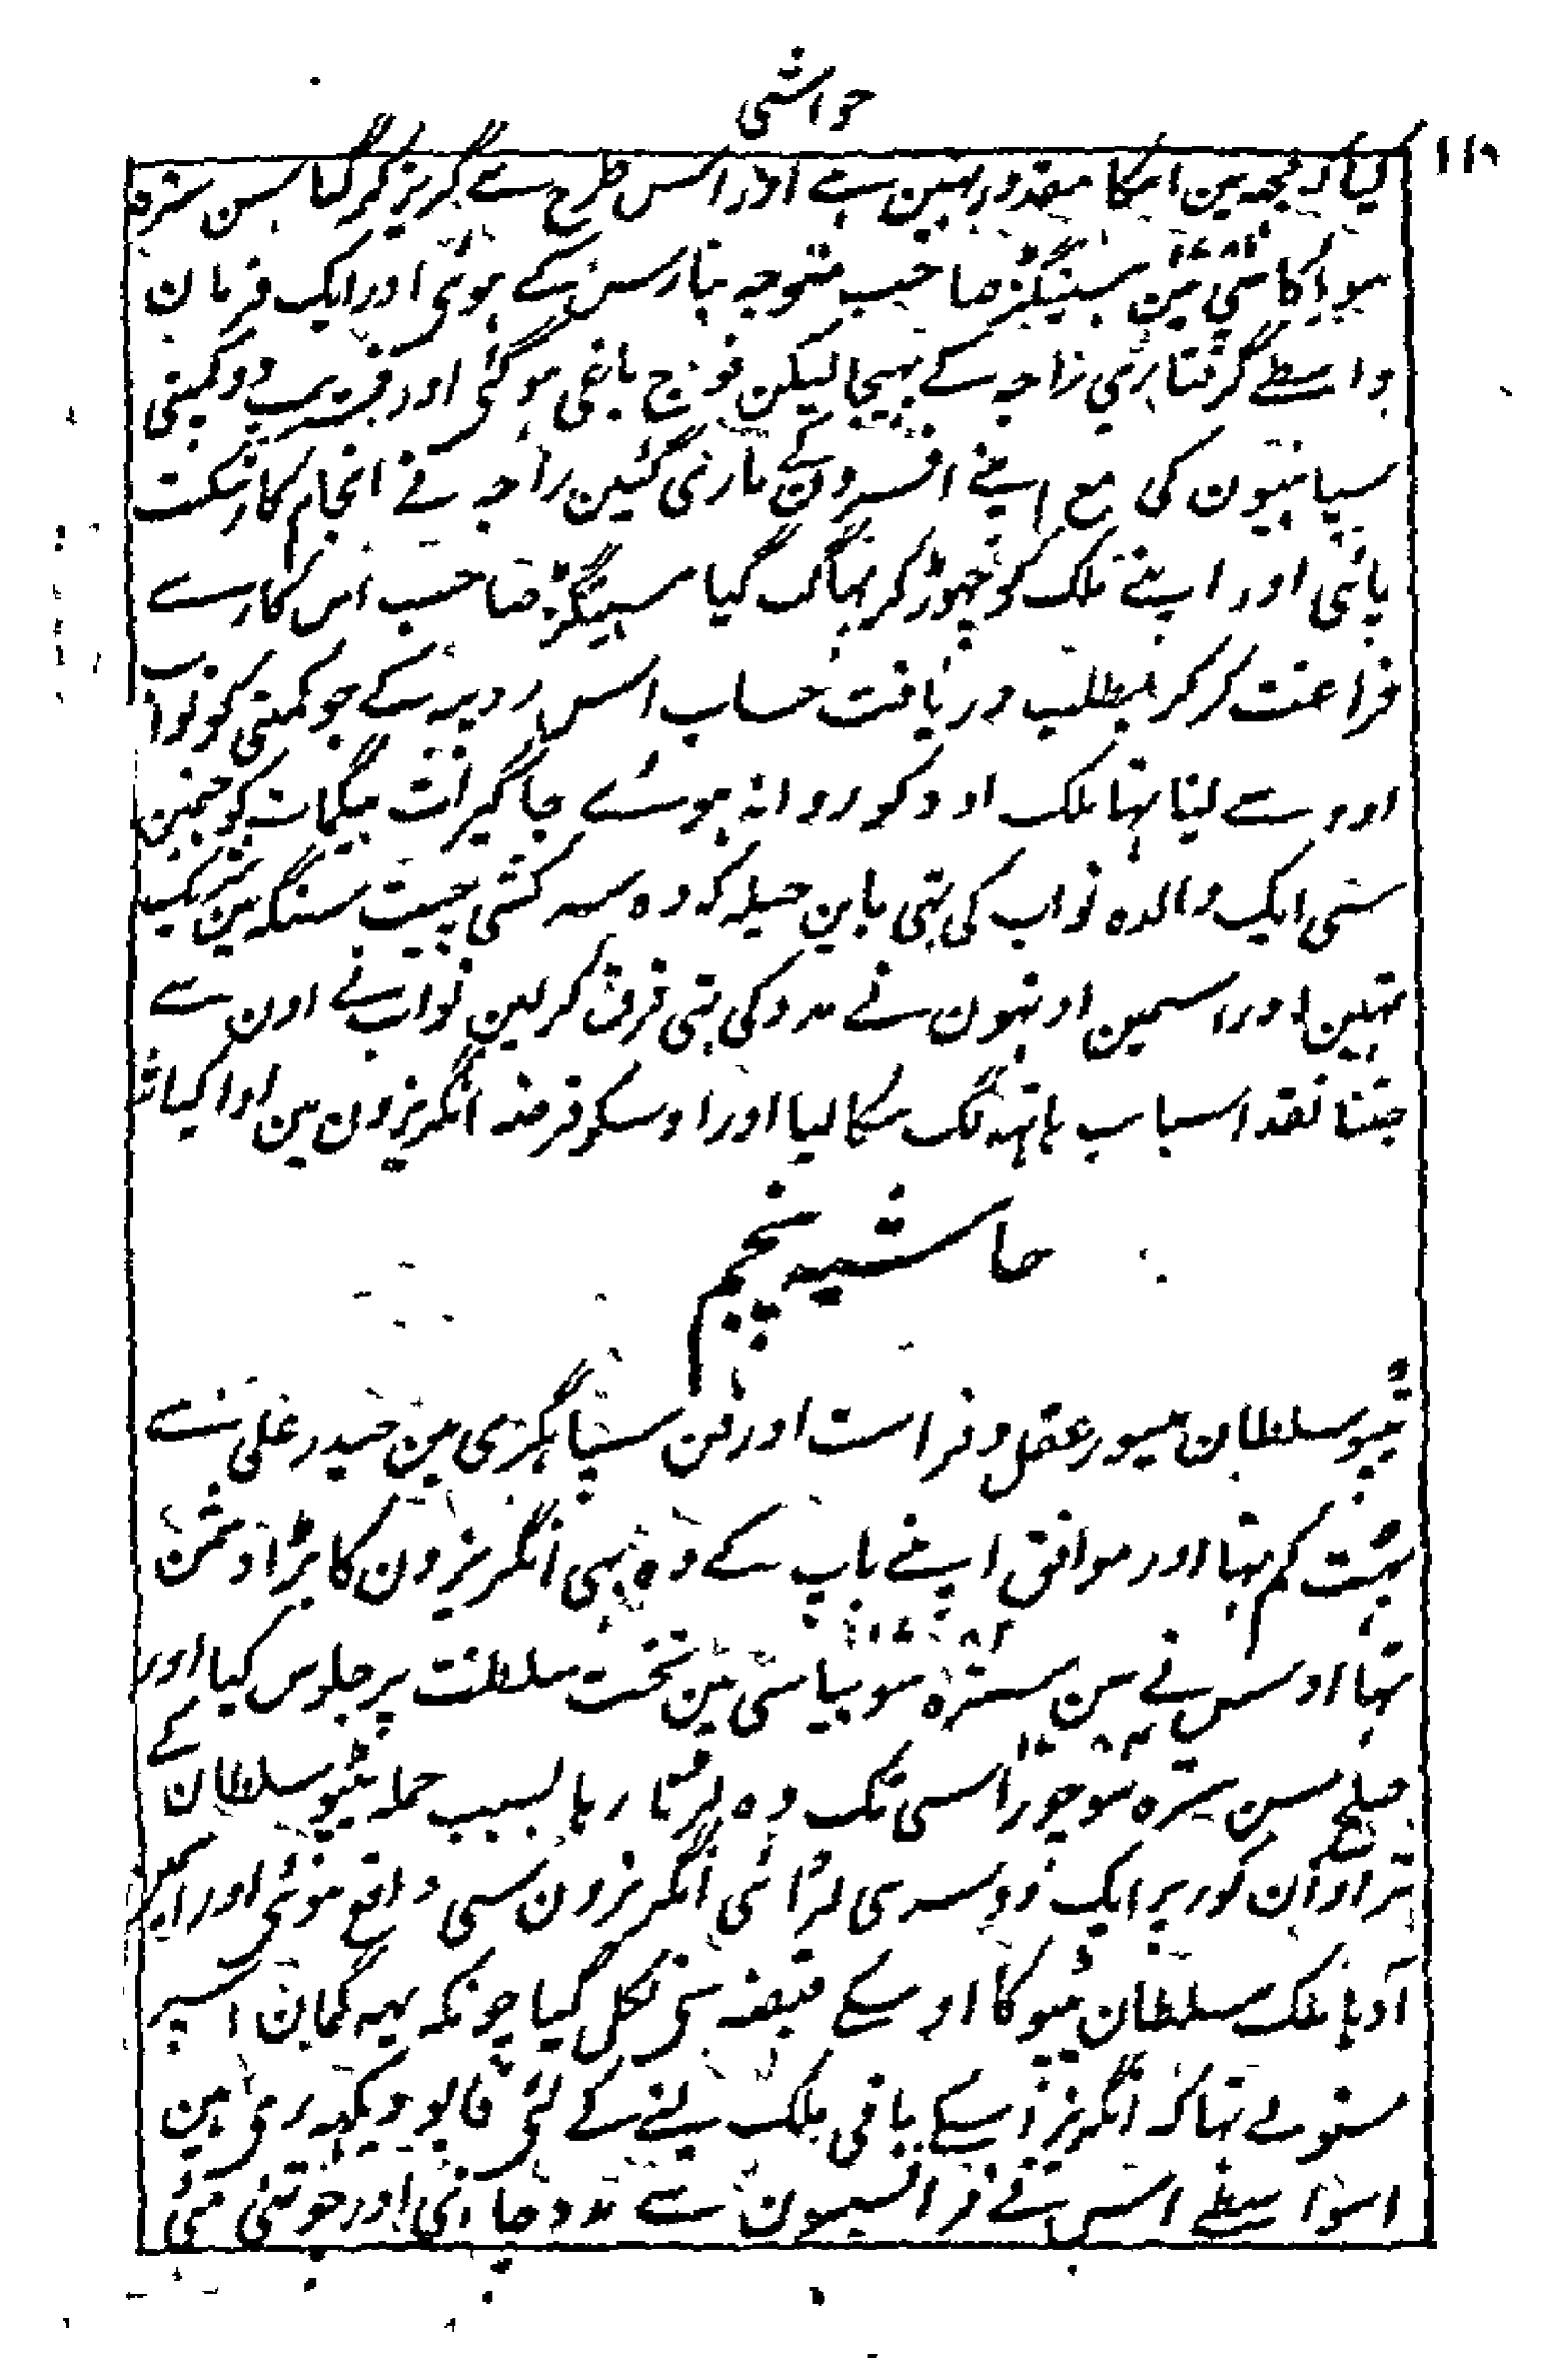 حواشی
۱۱۰
کیا کہ مجہ مین اسکا مقدور نہین ہے اور اس طرح سے گریز کرگیا سن سترہ
سو اکاسی مین ہسٹینگز صاحب متوجہ بنارس کے ہوئی اور ایک فرمان
واسطے گرفتاری راجہ کے بہیجا لیکن فوج باغی ہوگئی اور قریب دو کمپنی
سپاہیون کی مع اپنے افسرون کے ماری گئین راجہ نے انجام کار شکست
پائی اور اپنے ملک کو چہوڑ کر بہاگ گیا ہسٹینگز صاحب اس کار سے
فراغت کر کر بمطلب دریافت حساب اس روپیہ کے جو کمپنی کو نواب
اودہ سے لینا تہا ملک اودہ کو روانہ ہوئے جاگیرات بیگمات کو جنمین
سی ایک والدہ نواب کی تہی باین حیلہ کہ وہ سرکشی چیت سنگہ مین شریک
تہین اور اسمین اونہون نے مدد کی تہی قرق کرلین نواب نے اون سے
جتنا نقد اسباب ہاتہہ لگ سکا لیا اور اوسکو قرضہ انگریزون مین ادا کیا
حاشیہ پنجم
ٹیپو سلطان میسور عقل و فراست اور فن سپاہگری مین حیدر علی سے
بہت کم تہا اور موافق اپنے باپ کے وہ بہی انگریزون کا بڑا دشمن
تہا اوس نے سن سترہ سو بیاسی مین تخت سلطنت پر جلوس کیا اور
صلح سن سترہ سو چوراسی تک وہ لڑتا رہا بسبب حملہ ٹیپو سلطان کے
تراوان کور پر ایک دوسری لڑائی انگریزون سی واقع ہوئی اور اسمین
آدہا ملک سلطان ٹیپو کا اوسکے قبضہ سی نکل گیا چونکہ یہہ گمان اسپر
مستولے تہا کہ انگریز اسکے باقی ملک لینے کے لئی قابو دیکہہ رہی ہین
اسواسطے اس نے فرانسیسون سے مدد چاہی اور جو تہی مئی